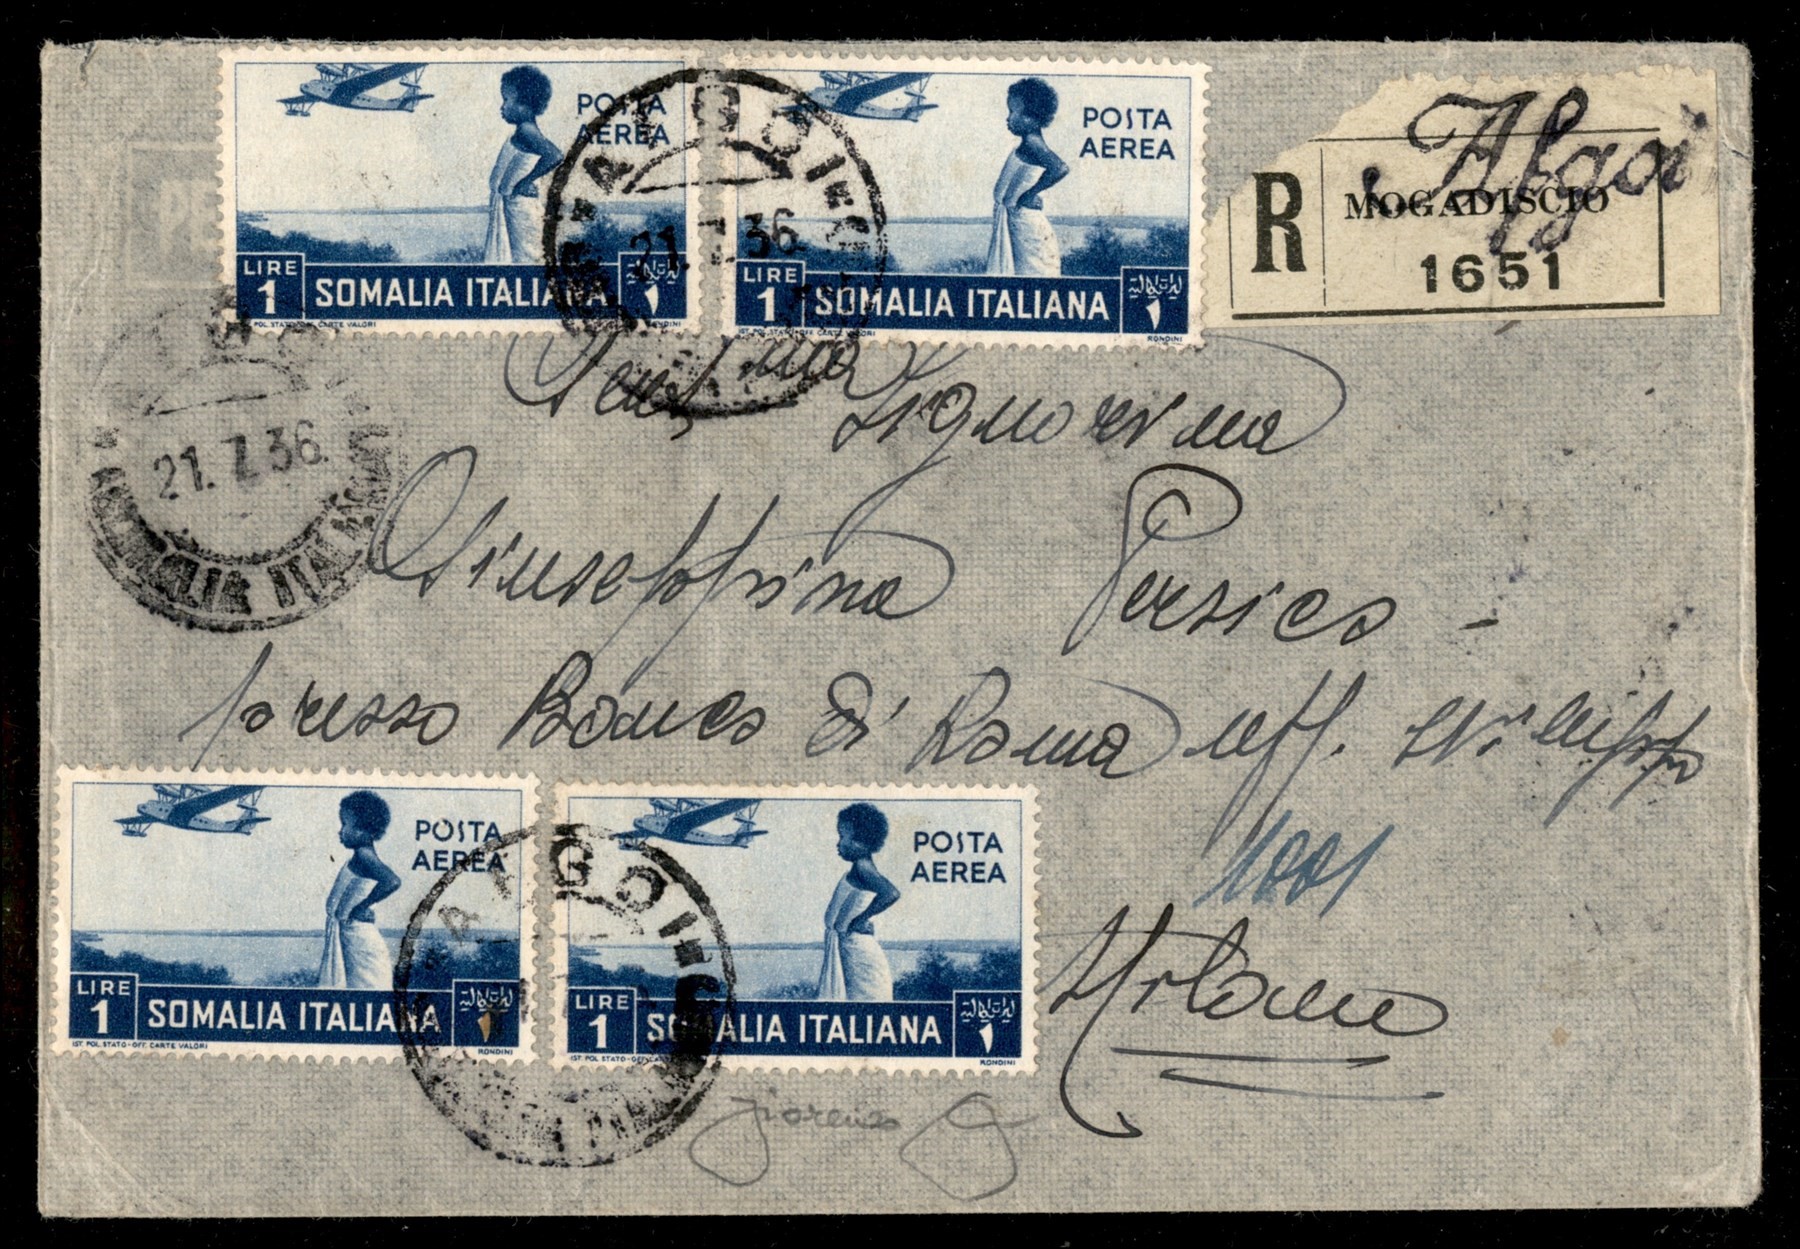 POSTA
AEREA
LIRE
1
SOMALIA ITALIANA
١
POL. STATO - OFF. CARTE VALORI
RONDINI
POSTA
AEREA
LIRE
1
SOMALIA ITALIANA
١
IST. POL. STATO - OFF. CARTE VALORI
RONDINI
21. 36
R
MOGADISCIO
1651
Algoi
21. 7. 36
SOMALIA ITALIANA
Signorina
Giuseppina Persico -
presso Banca di Roma uff.
1001
Milano
POSTA
AEREA
LIRE
1
SOMALIA ITALIANA
١
IST. POL. STATO - OFF. CARTE VALORI
RONDINI
POSTA
AEREA
LIRE
1
SOMALIA ITALIANA
١
IST. POL. STATO - OFF. CARTE VALORI
RONDINI
Fiorenzo